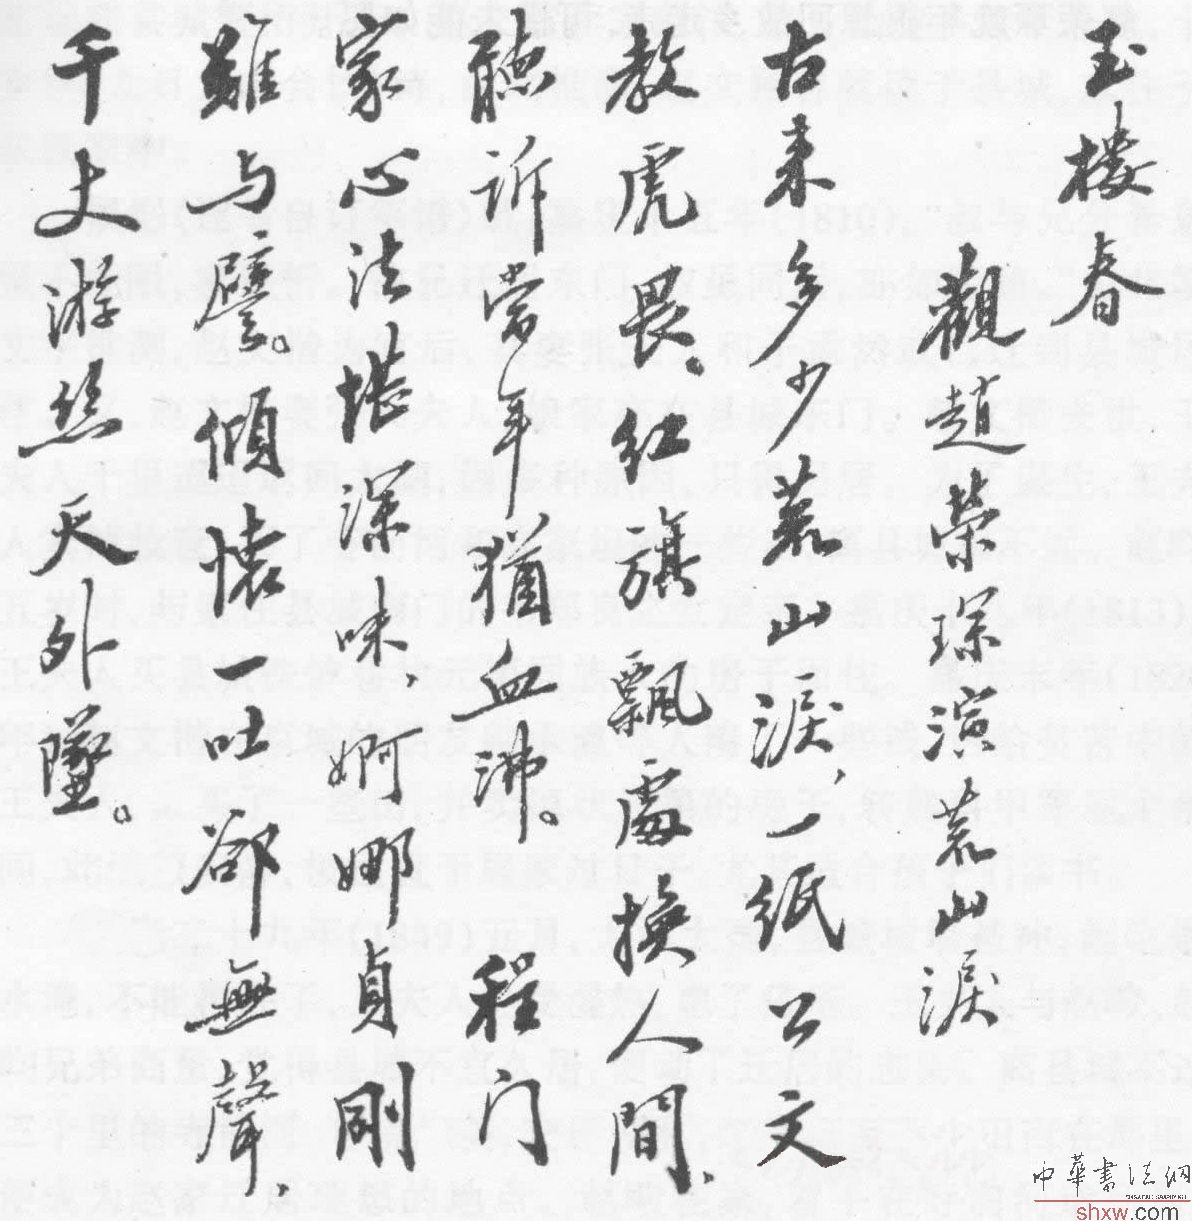 玉楼春
觀趙榮琛演荒山淚
古来多少荒山淚、一纸公文
教虎畏。红旗飄處换人間、
聽訴當年猶血沸。程门
家心法悵深味、婀娜貞刚
難与譬。傾懷一吐郤無聲、
千丈游丝天外墜。
中華書法網
shxw.com